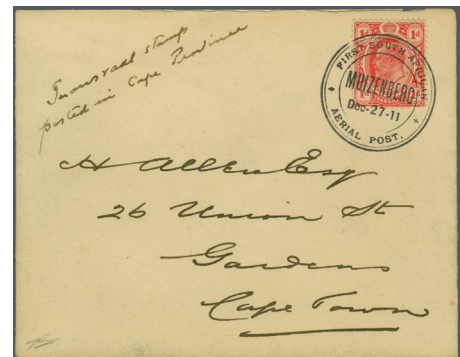 Transvaal stamp
posted in Cape Province
1d 1d
FIRST SOUTH AFRICAN
MUIZENBERG
Dec-27-11
AERIAL POST.
H Allen Esq
26 Union St
Gardens
Cape Town